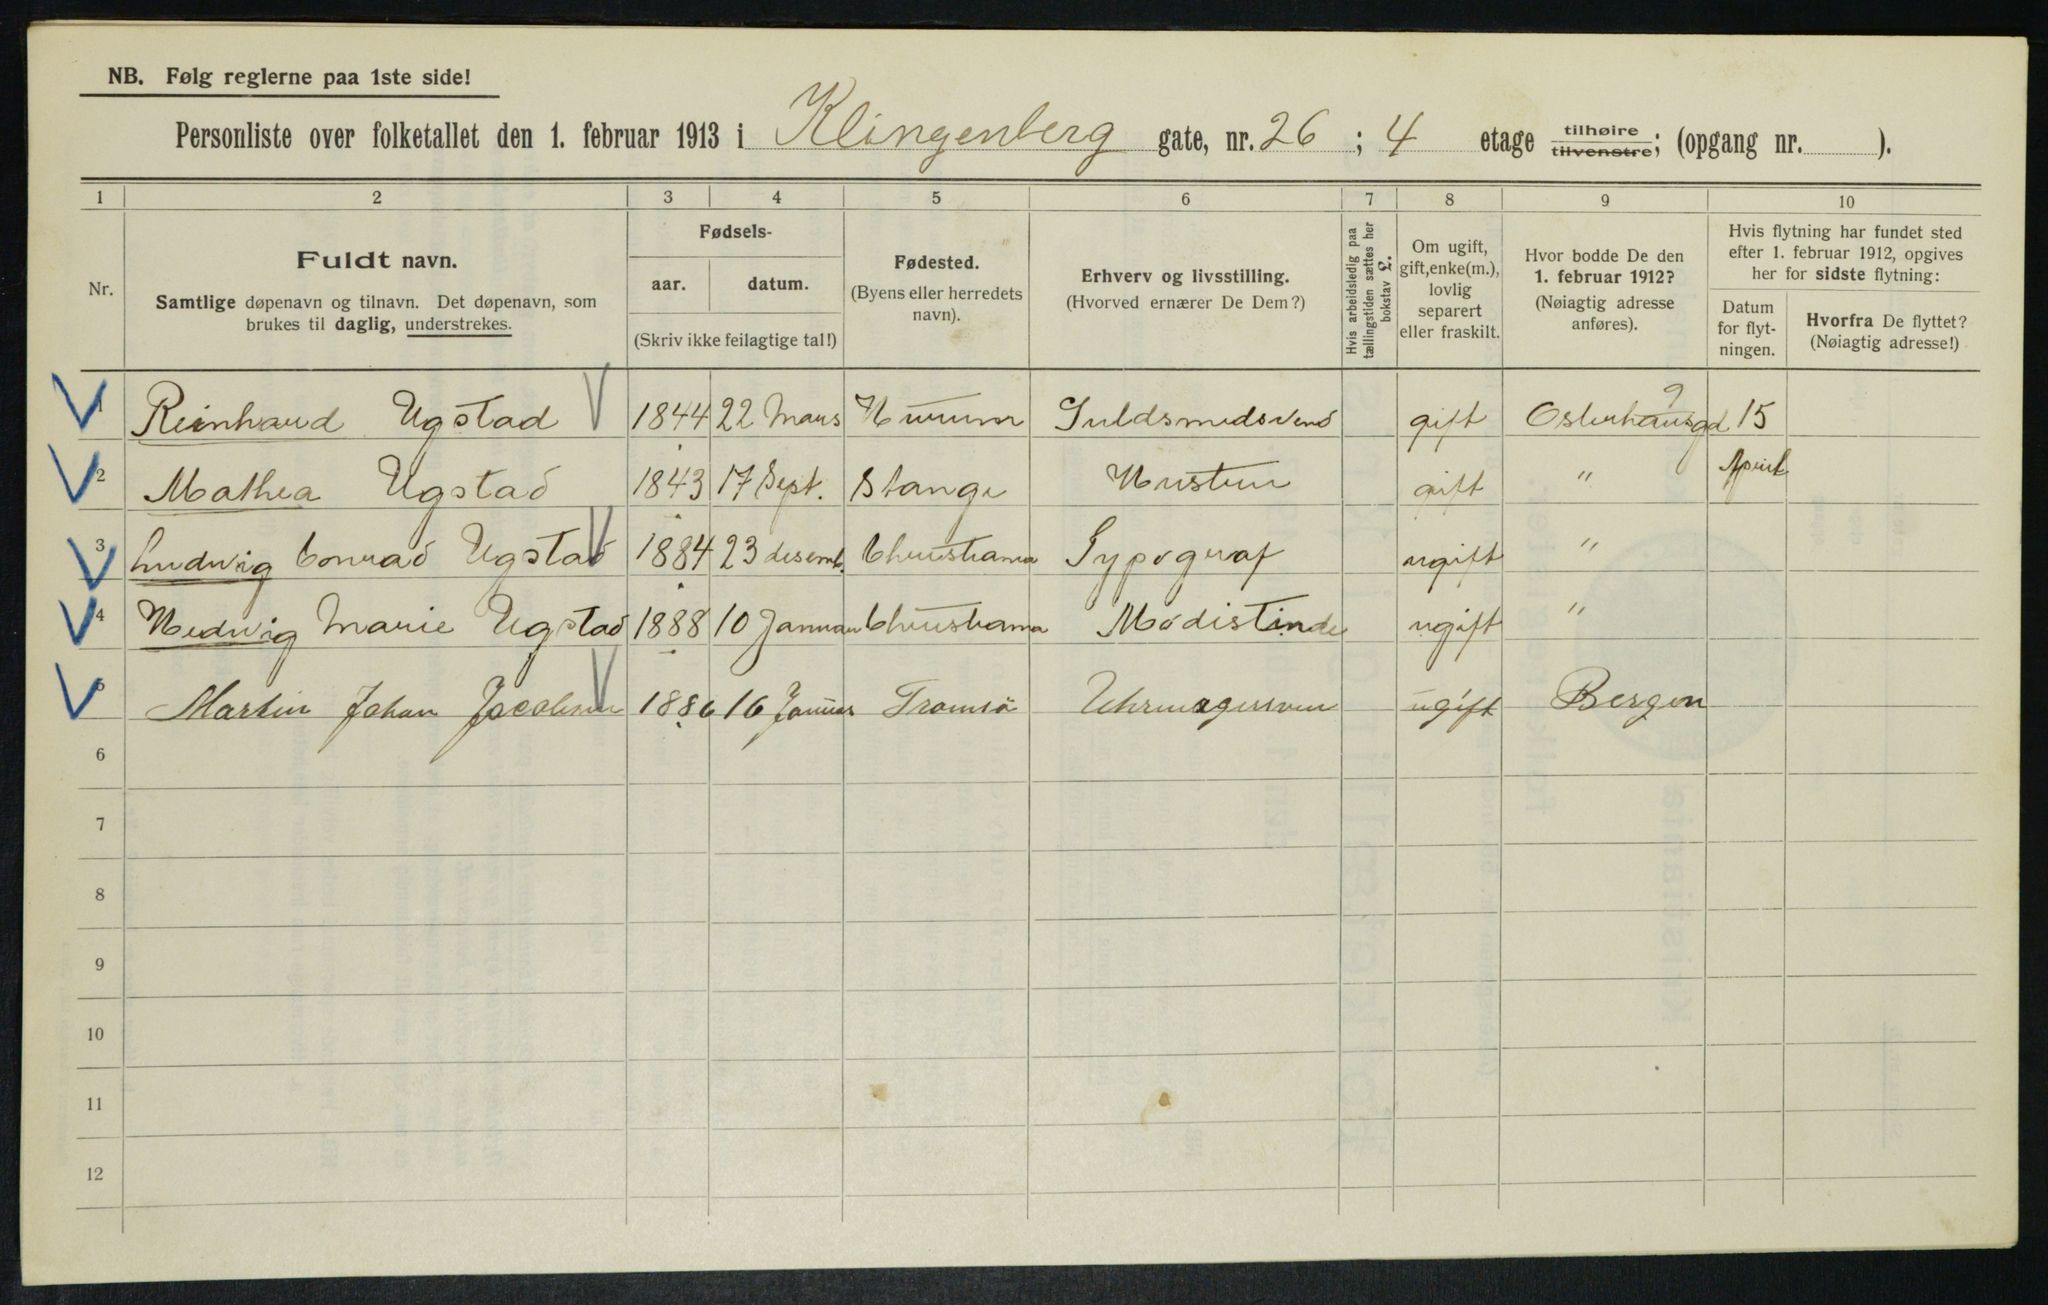 NB. Følg reglerne paa 1ste side!
Personliste over folketallet den 1. februar 1913 i Klingenberg gate, nr. 26 ; 4 etage tilhøire tilvenstre; (opgang nr. ).
1 2 3 4 5 6 7 8 9 10
Nr.
Fuldt navn.
Samtlige døpenavn og tilnavn. Det døpenavn, som
brukes til daglig, understrekes.
Fødsels-
aar. datum.
(Skriv ikke feilagtige tal!)
Fødested.
(Byens eller herredets
navn).
Erhverv og livsstilling.
(Hvorved ernærer De Dem?)
Hvis arbeidsledig paa
tællingstiden sættes her
bokstav L.
Om ugift,
gift, enke(m.),
lovlig
separert
eller fraskilt.
Hvor bodde De den
1. februar 1912?
(Nøiagtig adresse
anføres).
Hvis flytning har fundet sted
efter 1. februar 1912, opgives
her for sidste flytning:
Datum
for flyt-
ningen.
Hvorfra De flyttet?
(Nøiagtig adresse!)
1 Reinhard Ugstad 1844 22 Mars Hurum Guldsmedsvend gift Osterhausgd 9 15
2 Mathea Ugstad 1843 17 Sept. Stange Hustru gift " April
3 Ludvig Conrad Ugstad 1884 23 desemb. Christiania Typograf ugift "
4 Hedvig Marie Ugstad 1888 10 Januar Christiania Modistinde ugift "
5 Martin Johan Jacobsen 1886 16 Januar Tromsö Uhrmagersven ugift Bergen
6
7
8
9
10
11
12